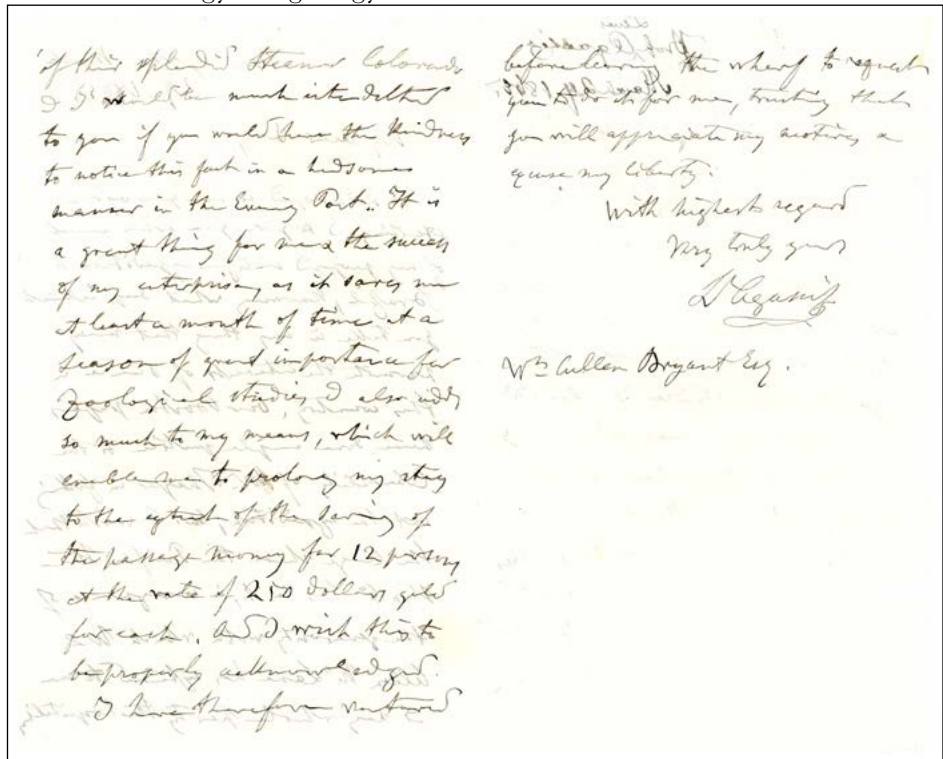 of this splendid Steamer Colorado
& I would be much indebted
to you if you would have the kindness
to notice this fact in a hdsome
manner in the Evening Post.. It is
a great thing for me & the success
of my enterprise, as it saves me
at least a month of time at a
season of great importance for
zoological studies & also adds
so much to my means, which will
enable me to prolong my stay
to the extent of the saving of
the passage money for 12 persons
at the rate of 250 dollars gold
for each. And I wish this to
be properly acknowledged.
I have therefore ventured
before leaving the wharf to request
you to do it for me, trusting that
you will appreciate my motives &
excuse my liberty.
With highest regard
Very truly yours
L Agassiz
Wm Cullen Bryant Esq.